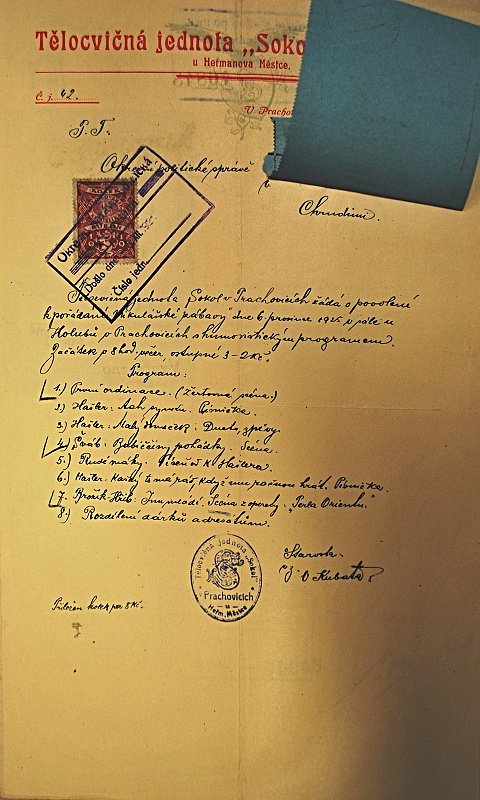 Tělocvičná jednota „Soko
u Heřmanova Městce.
Č. j. 42.
V Pracho
P. T.
Okresní politické správě
v
Chrudimi.
KOLEK
Došlo dne
Číslo jedn.
Tělocvičná jednota Sokol v Prachovicích žádá o povolení
k pořádání Mikulášské zábavy dne 6. prosince 1925 v sále u
Holubů v Prachovicích s humoristickým programem.
Začátek o 8 hod. večer, vstupné 3-2 Kč.
Program:
1.) První ordinace. (Žertovná scéna.)
2.) Hašler: Ach synku. Písnička.
3.) Hašler: Malý Duets, zpěvy.
4.) Šváb: Babiččiny pohádky. Scéna.
5.) Rudé máky. Píseň od K. Hašlera.
6.) Hašler: Karty ty mě rád, když mu začnou hrát. Písnička.
7. Brožík-Hüb: Scéna z operety „Perla Orientu."
8.) Rozdílení dárků adresátům.
Starosta.
Kubata
Tělocvičná jednota "Sokol"
v Prachovicích
u
Heřm. Městce
Přiložen kolek per 5 Kč.